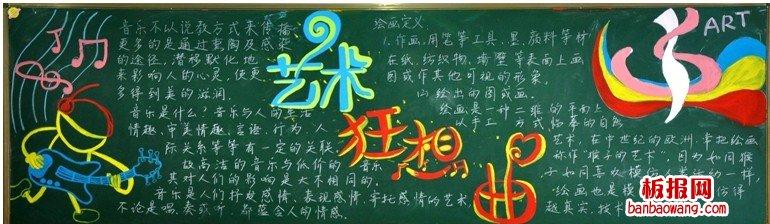 音乐不以说教方式来传播,
更多的是通过熏陶及感染
的途径,潜移默化地
来影响人的心灵,使更
多得到美的滋润。
音乐是什么?音乐与人的生活
情趣、审美情趣、言语、行为、人
际关系等等有一定的关联。
故高洁的音乐与低价的音乐
其对人们的影响是大不相同的。
音乐是人们抒发感情、表现感情、寄托感情的艺术
不论是唱、奏或听,都蕴含人的情感。
艺术
狂想
曲
绘画定义
1.作画,用笔等工具、墨、颜料等材
在纸、纺织物、墙壁等表面上画
图或作其他可视的形象
(2)绘出的图或画
绘画是一种二维的平面上
以手工方式临摹的自然
艺术,在中世纪的欧洲,常把绘画
称作猴子的艺术,因为如同猴
子如同喜欢模仿 的一样
绘画也是模 仿得
越真实,技
ART
板报网
banbaowang.com